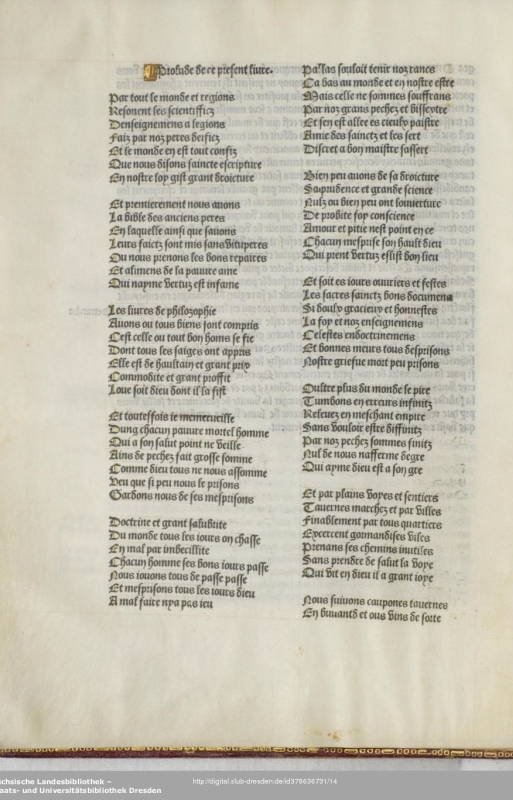 Prolude de ce present liure.
Par tout le monde et regions
Resonent les scientifficz
Denseignemens a legions
Faiz par noz peres deificz
Et le monde en est tout confiz
Que nous disons saincte escripture
En nostre loy gist grant droicture
Et premierement nous auons
La bible des anciens peres
En laquelle ainsi que sauons
Leurs faictz sont mis sans vituperes
Ou nous prenons les bons repaires
Et alimens de la pauure ame
Qui nayme vertuz est infame
Les liures de philozophie
Auons ou tous biens sont compris
Cest celle ou tout bon homs se fie
Dont tous les saiges ont appris
Elle est de haultain et grant prix
Commodite et grant proffit
Loue soit dieu dont il la fist
Et toutesfois ie memerueille
Dung chacun pauure mortel homme
Qui a son salut point ne veille
Ains de pechez fait grosse somme
Comme dieu tous ne nous assomme
Veu que si peu nous le prisons
Gardons nous de ses mesprisons
Doctrine et grant salubrite
Du monde tous les iours on chasse
En mal par imbecillite
Chacun homme ses bons iours passe
Nous iouons tous de passe passe
Et mesprisons tous les iours dieu
A mal faire nya pas ieu
Pallas souloit tenir noz rancs
Ca bas au monde et en nostre estre
Mais celle ne sommes souffrans
Par noz grans pechez et bissextre
Et sen est allee es cieulx paistre
Amie des sainctz et les sert
Discret a bon maistre sassert
Bien peu auons de sa droicture
Sa prudence et grande science
Nulz ou bien peu ont louuerture
De probite foy conscience
Amour et pitie nest point en ce
Chacun mesprise son hault dieu
Qui prent vertuz eslist bon lieu
Et soit es iours ouuriers et festes
Les sacres sainctz bons documens
Si doulx gracieux et honnestes
La foy et noz enseignemens
Celestes endoctrinemens
Et bonnes meurs tous desprisons
Nostre griefue mort peu prisons
Oultre plus du monde le pire
Tumbons en erreurs infinitz
Releuez en meschant empire
Sans vouloir estre diffinitz
Par noz pechez sommes finitz
Nul de nous nafferme degre
Qui ayme dieu est a son gre
Et par plains voyes et sentiers
Tauernes marchez et par villes
Finablement par tous quartiers
Excercent gormandises viles
Prenans ses chemins inutiles
Sans prendre de salut la voye
Qui vit en dieu il a grant ioye
Nous suiuons caupones tauernes
En buuantz et ous vins de sorte
Sächsische Landesbibliothek –
Staats- und Universitätsbibliothek Dresden
http://digital.slub-dresden.de/id378636731/14